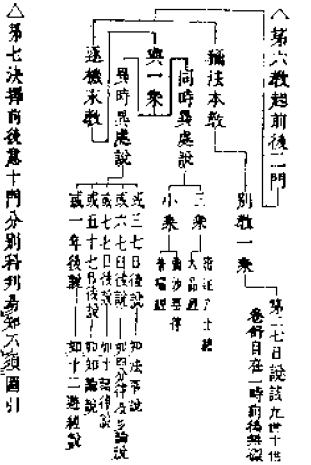 △第六教起前後二門
稱法本教
別教一乘
第二七日說該九世十世
卷舒自在一時前後無礙
同時異處說
三乘
密迹力士經
大品經
小乘
彌沙塞律
普曜經
與一乘
異時異處說
或三七日後說
如法華說
或六七日後說
如四分律及多論說
或七七日後說
如十誦律說
或五十七日後說
如智論說
或一年後說
如十二遊經說
逐機末教
△第七決擇前後意十門分別科判易知不須圖引